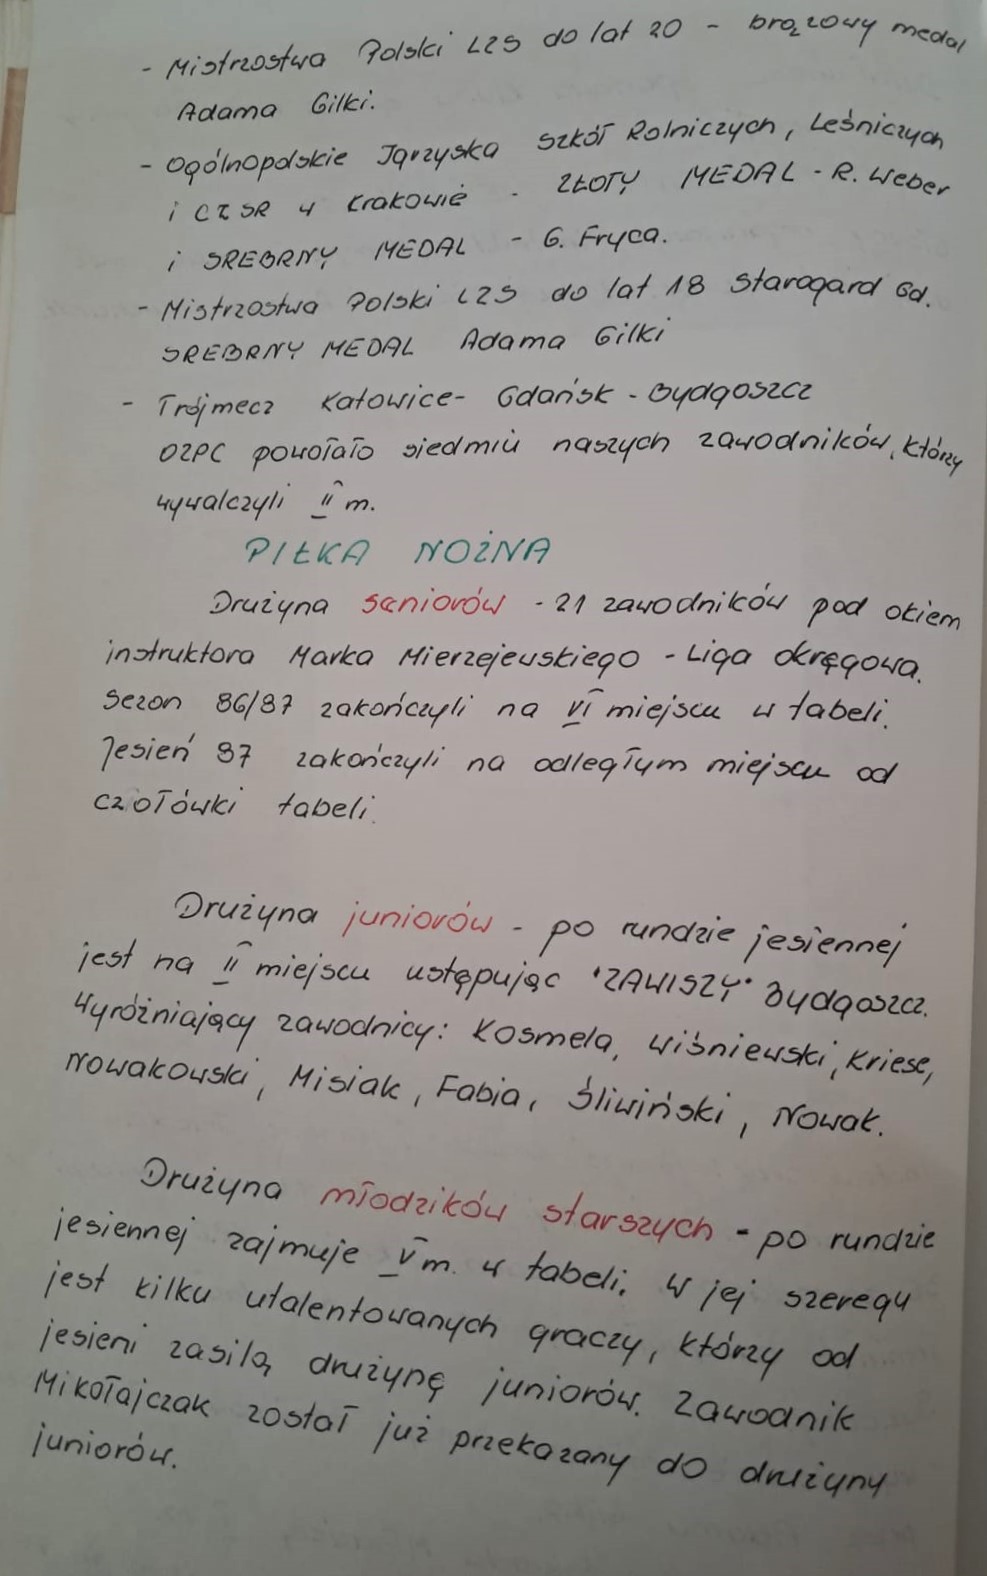 - Mistrzostwa Polski LZS do lat 20 - brązowy medal
Adama Gilki.
- Ogólnopolskie Igrzyska Szkół Rolniczych, Leśniczych
i CZSR w Krakowie - ZŁOTY MEDAL - R. Weber
i SREBRNY MEDAL - G. Fryca.
- Mistrzostwa Polski LZS do lat 18 Starogard Gd.
SREBRNY MEDAL Adama Gilki
- Trójmecz Katowice - Gdańsk - Bydgoszcz
OZPC powołało siedmiu naszych zawodników, którzy
wywalczyli II m.
PIŁKA NOŻNA
Drużyna seniorów - 21 zawodników pod okiem
instruktora Marka Mierzejewskiego - Liga okręgowa.
Sezon 86/87 zakończyli na VI miejscu w tabeli.
Jesień 87 zakończyli na odległym miejscu od
czołówki tabeli.
Drużyna juniorów - po rundzie jesiennej
jest na II miejscu ustępując "ZAWISZY" Bydgoszcz.
Wyróżniający zawodnicy: Kosmela, Wiśniewski, Kriese,
Nowakowski, Misiak, Fabia, Śliwiński, Nowak.
Drużyna młodzików starszych - po rundzie
jesiennej zajmuje V m. w tabeli. W jej szeregu
jest kilku utalentowanych graczy, którzy od
jesieni zasilą drużynę juniorów. Zawodnik
Mikołajczak został już przekazany do drużyny
juniorów.